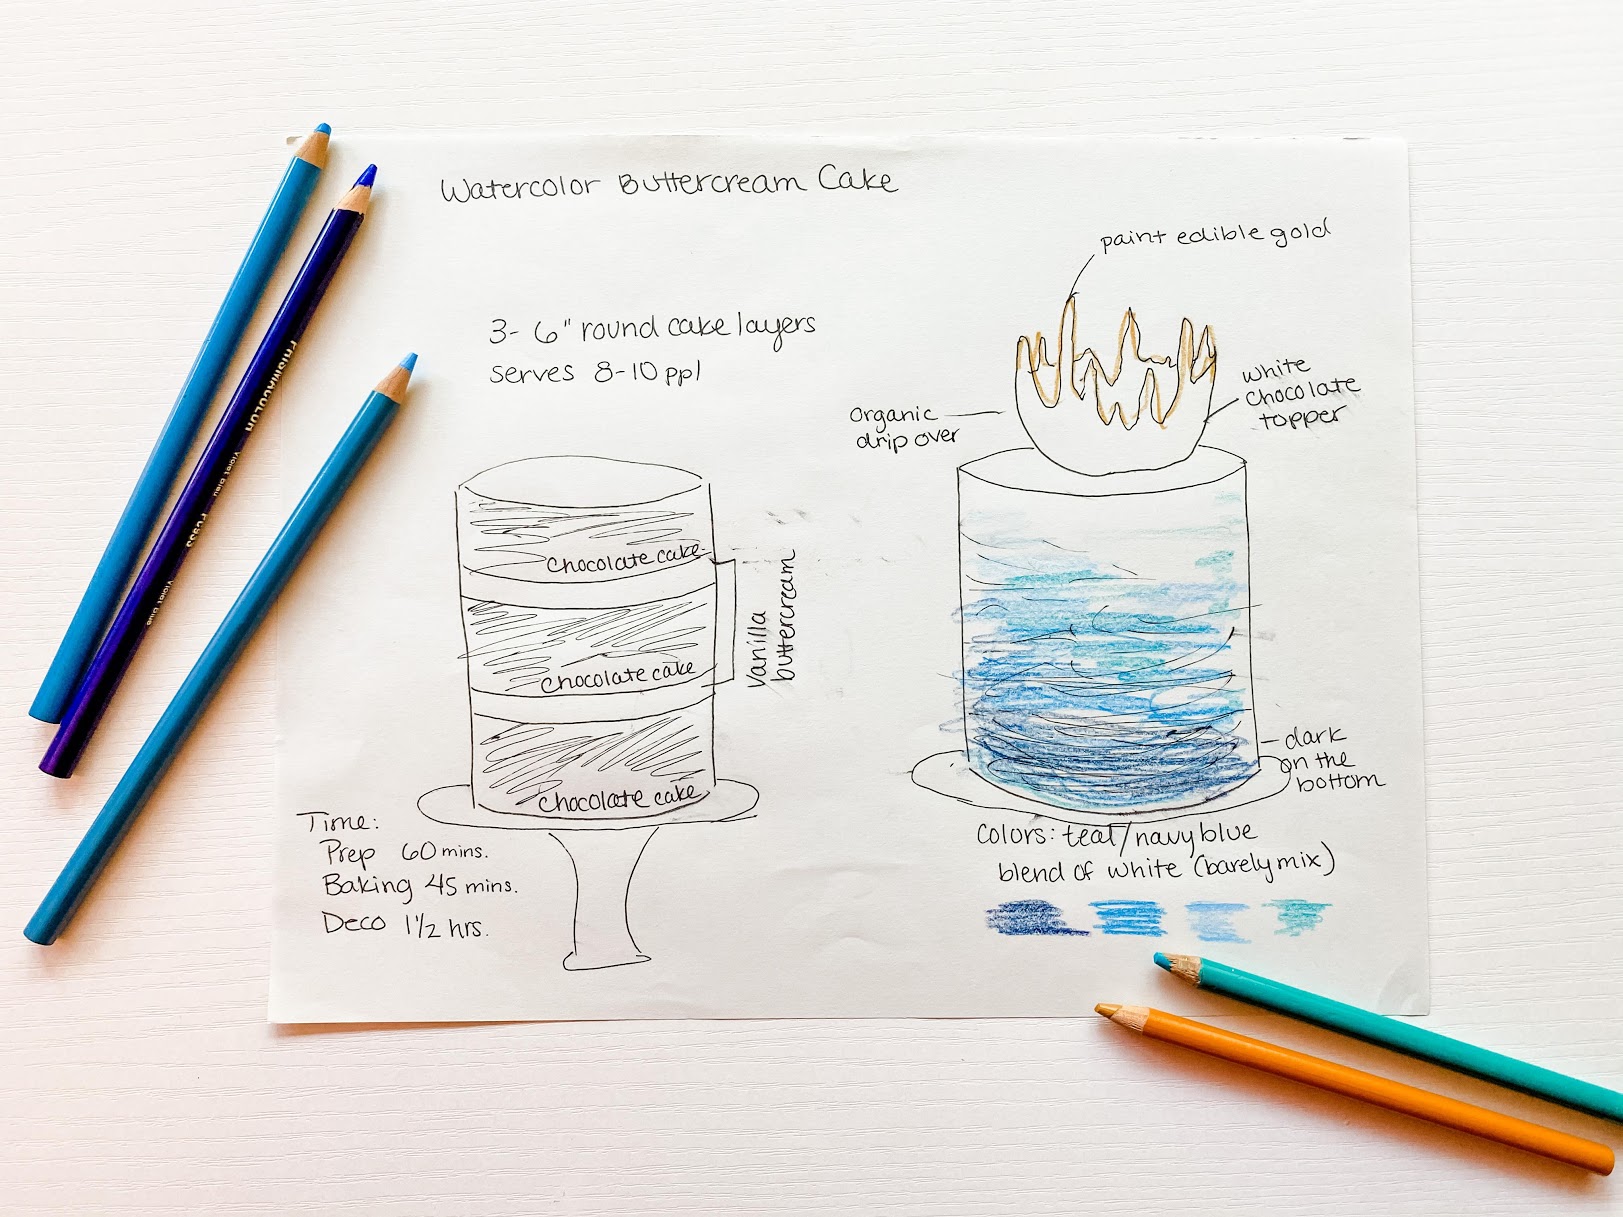 Watercolor Buttercream Cake
3- 6" round cake layers
serves 8-10 ppl
Chocolate cake
Chocolate cake
Chocolate cake
Vanilla
buttercream
Time:
Prep 60 mins.
Baking 45 mins.
Deco 1 1/2 hrs.
paint edible gold
white
chocolate
topper
Organic
drip over
dark
on the
bottom
Colors: teal/navy blue
blend of white (barely mix)
PRISMACOLOR
Violet Blue
PC933
Violet Blue